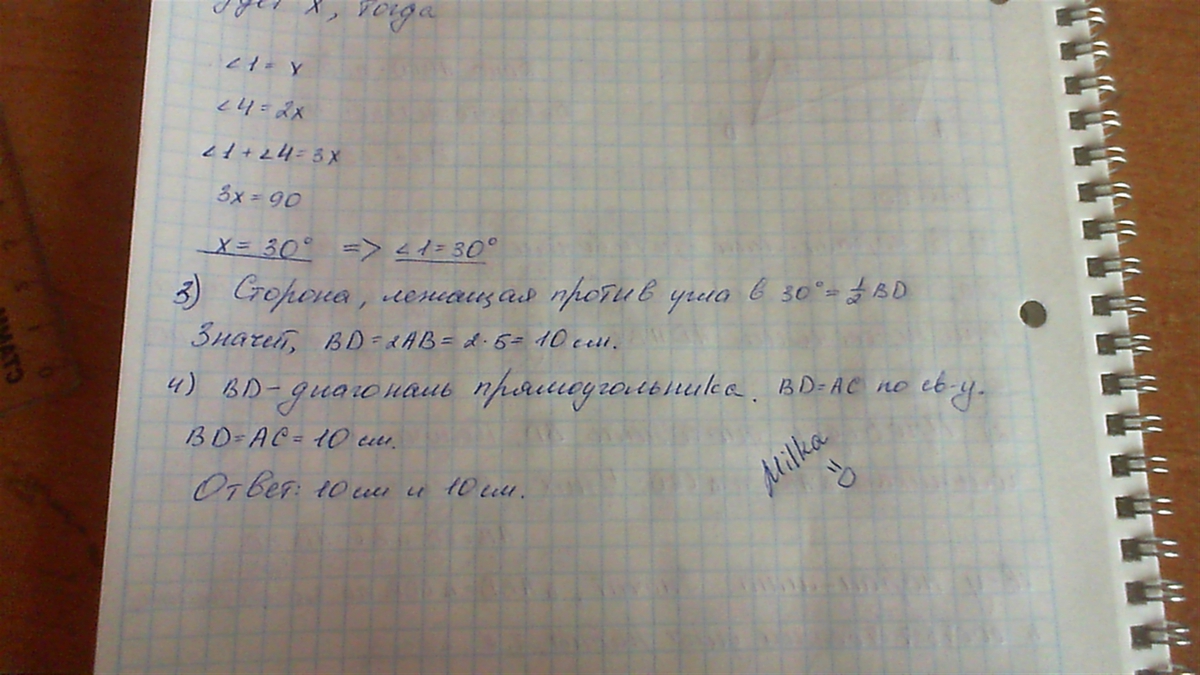 будет x, тогда
∠1 = x
∠4 = 2x
∠1 + ∠4 = 3x
3x = 90
x = 30° => ∠1 = 30°
3) Сторона, лежащая против угла в 30° = 1/2 BD
Значит, BD = 2AB = 2·5 = 10 см.
4) BD - диагональ прямоугольника. BD = AC по св-у.
BD = AC = 10 см.
Ответ: 10 см и 10 см.
Milka
=D